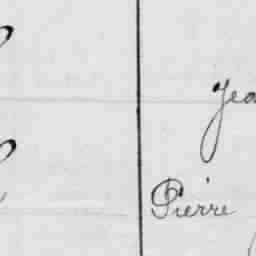 Jea
Pierre